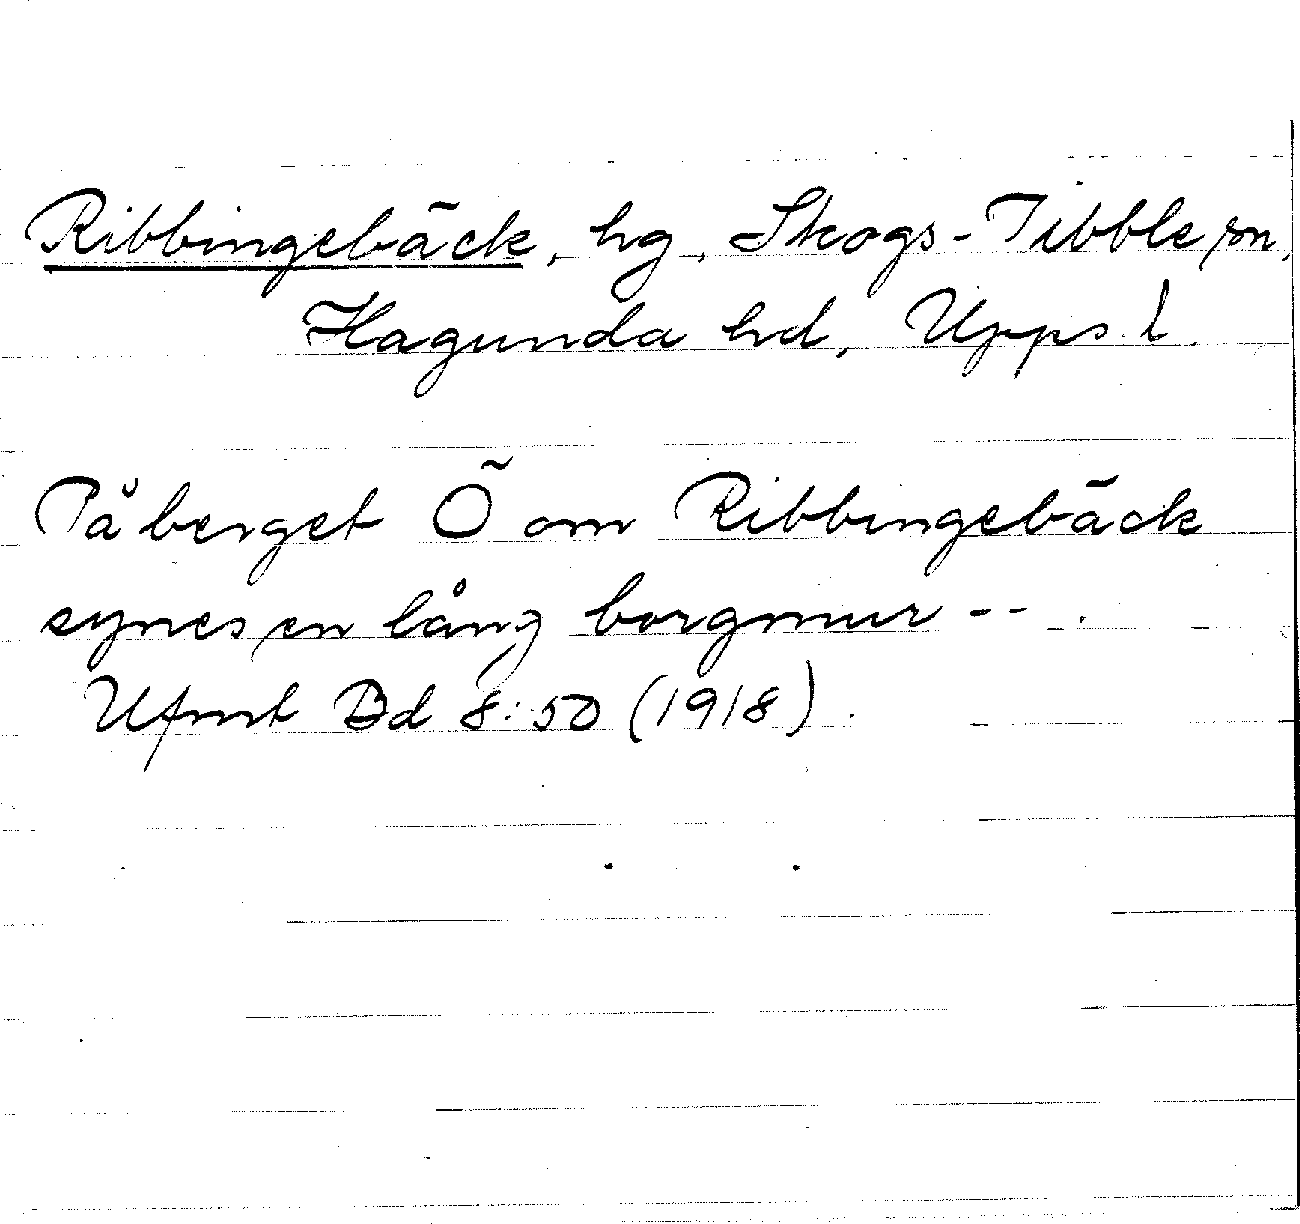 Ribbingebäck, hg, Skogs-Tibble sn,
Hagunda hd, Upps. l.
På berget Ö om Ribbingebäck
synes en lång borgmur -- .
Ufmt Bd 8:50 (1918).